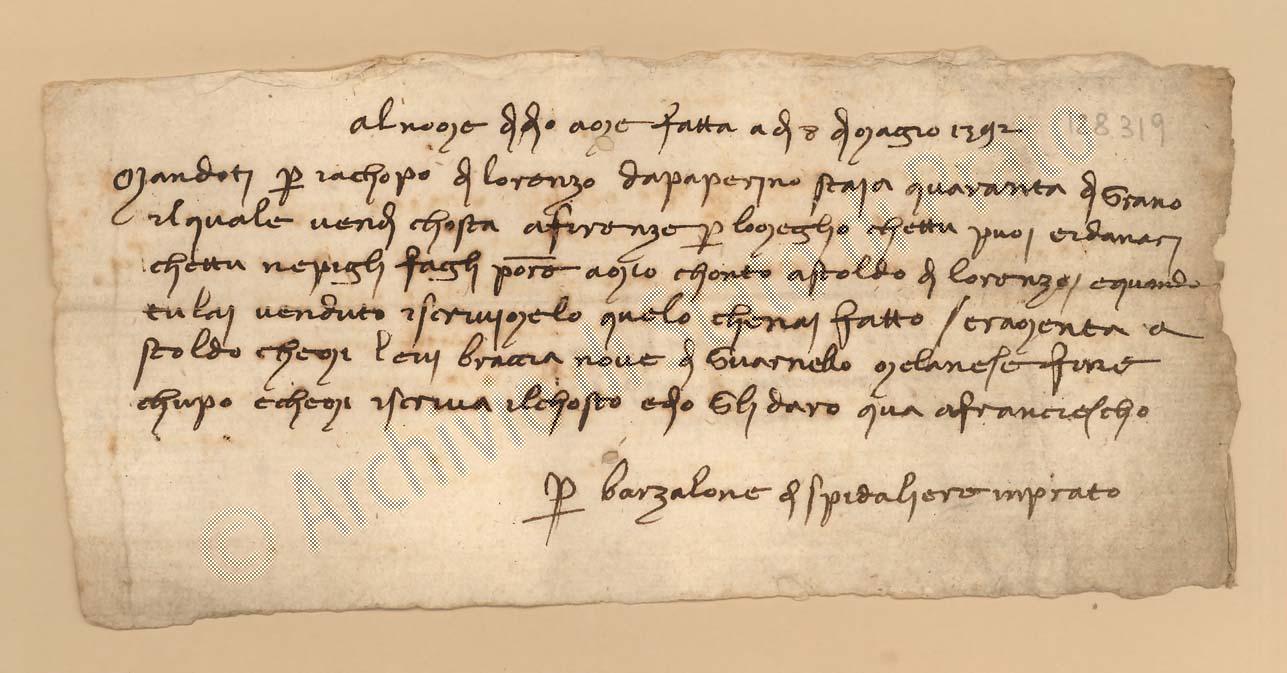 al nome di dio ame fatta a dì 8 di magio 1392
Mandoti per iachopo di lorenzo dapaperino staia quaranta di grano
ilquale vendi chosta afirenze per lomeglio chettu puoi eidanari
chettu nepigli fagli porre amio chonto astoldo di lorenzo, equando
tulai venduto iscrivimelo quelo chenai fatto / eramenta a
stoldo chemi levi braccia nove di guarnello melanese fine
chupo echemi iscriva ilchosto edio gli daro qua afranciescho
per barzalone di spidaliere inprato
128319
© Archivio di Stato di Prato